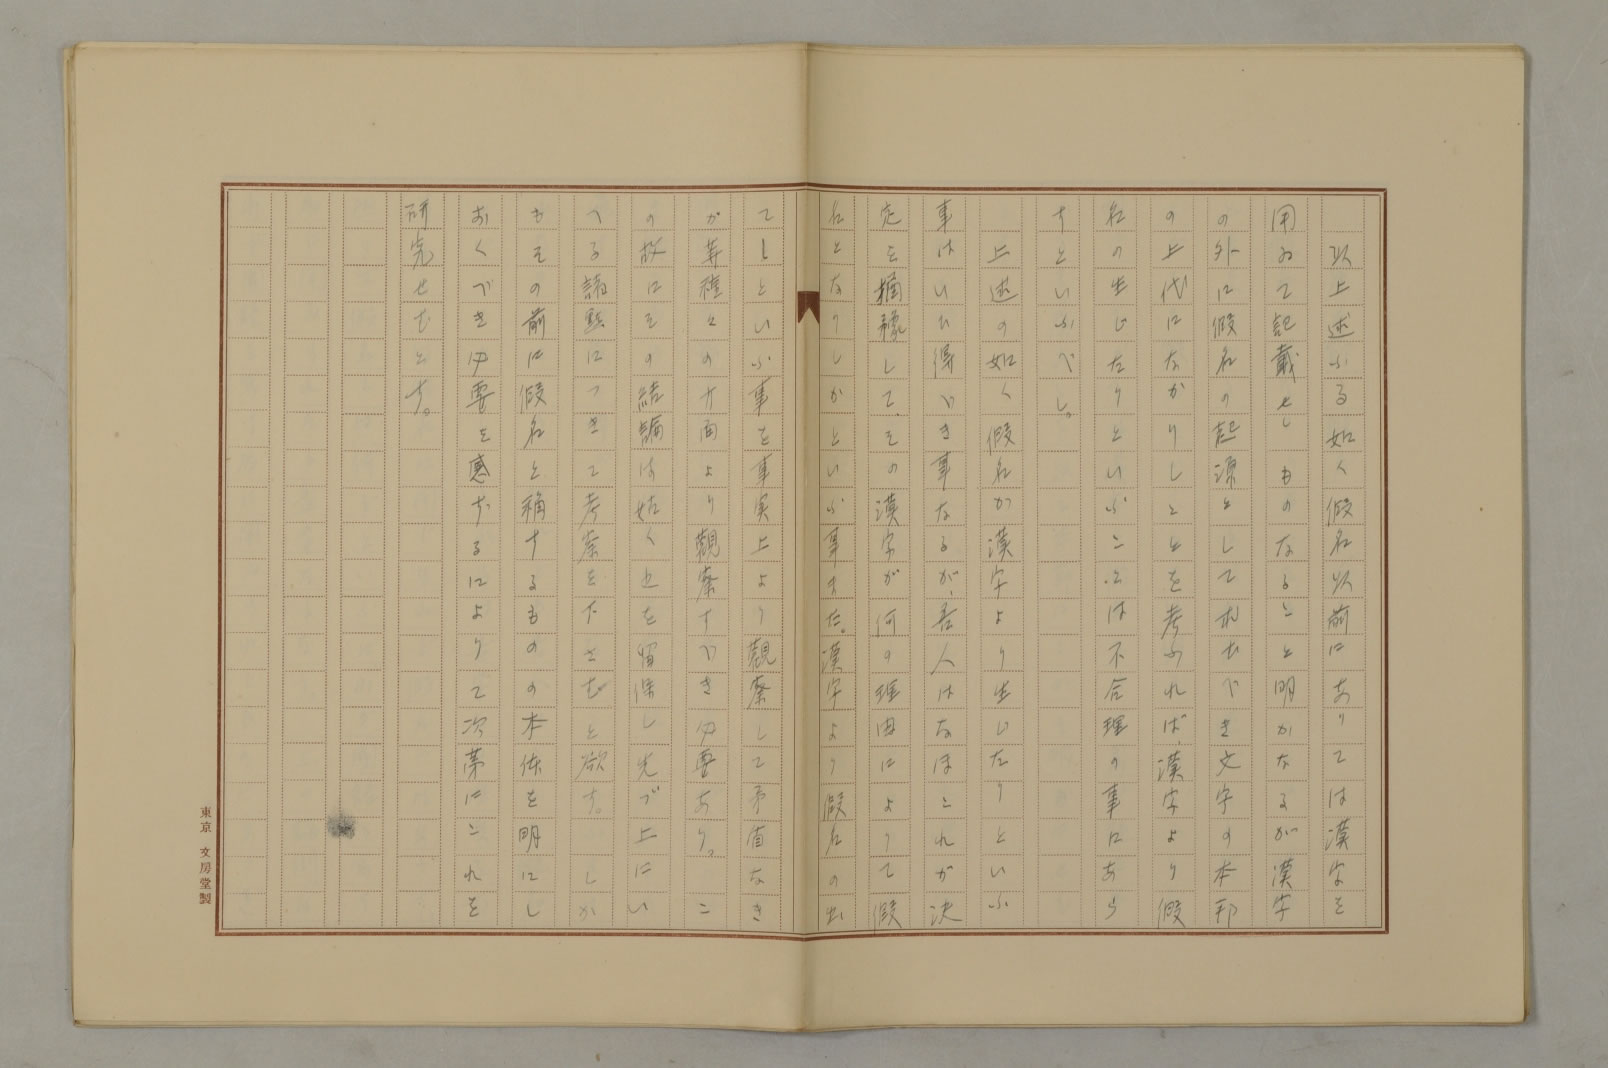 以上述ふる如く假名以前にありては漢字を
用ゐて記載せしものなること明かなるが漢字
の外に假名の起源として求むべき文字の本邦
の上代になかりしことを考ふれば、漢字より假
名の生じたりといふことは不合理の事にあら
ずといふべし。
上述の如く假名が漢字より生じたりといふ
事はいひ得べき事なるが、吾人はなほこれが決
定を して、その漢字が何の理由によりて假
名となりしかといふ事また。漢字より假名の出
でしといふ事を事実上より觀察して矛盾なき
か等種々の方面より觀察すべき必要あり。こ
の故にその結論は姑く之を留保し先づ上にい
へる諸點につきて考察を下さむと欲す。しか
もその前に假名と稱するものの本体を明にし
おくべき必要を感ずるによりて次第にこれを
研究せむとす。
東京 文房堂製